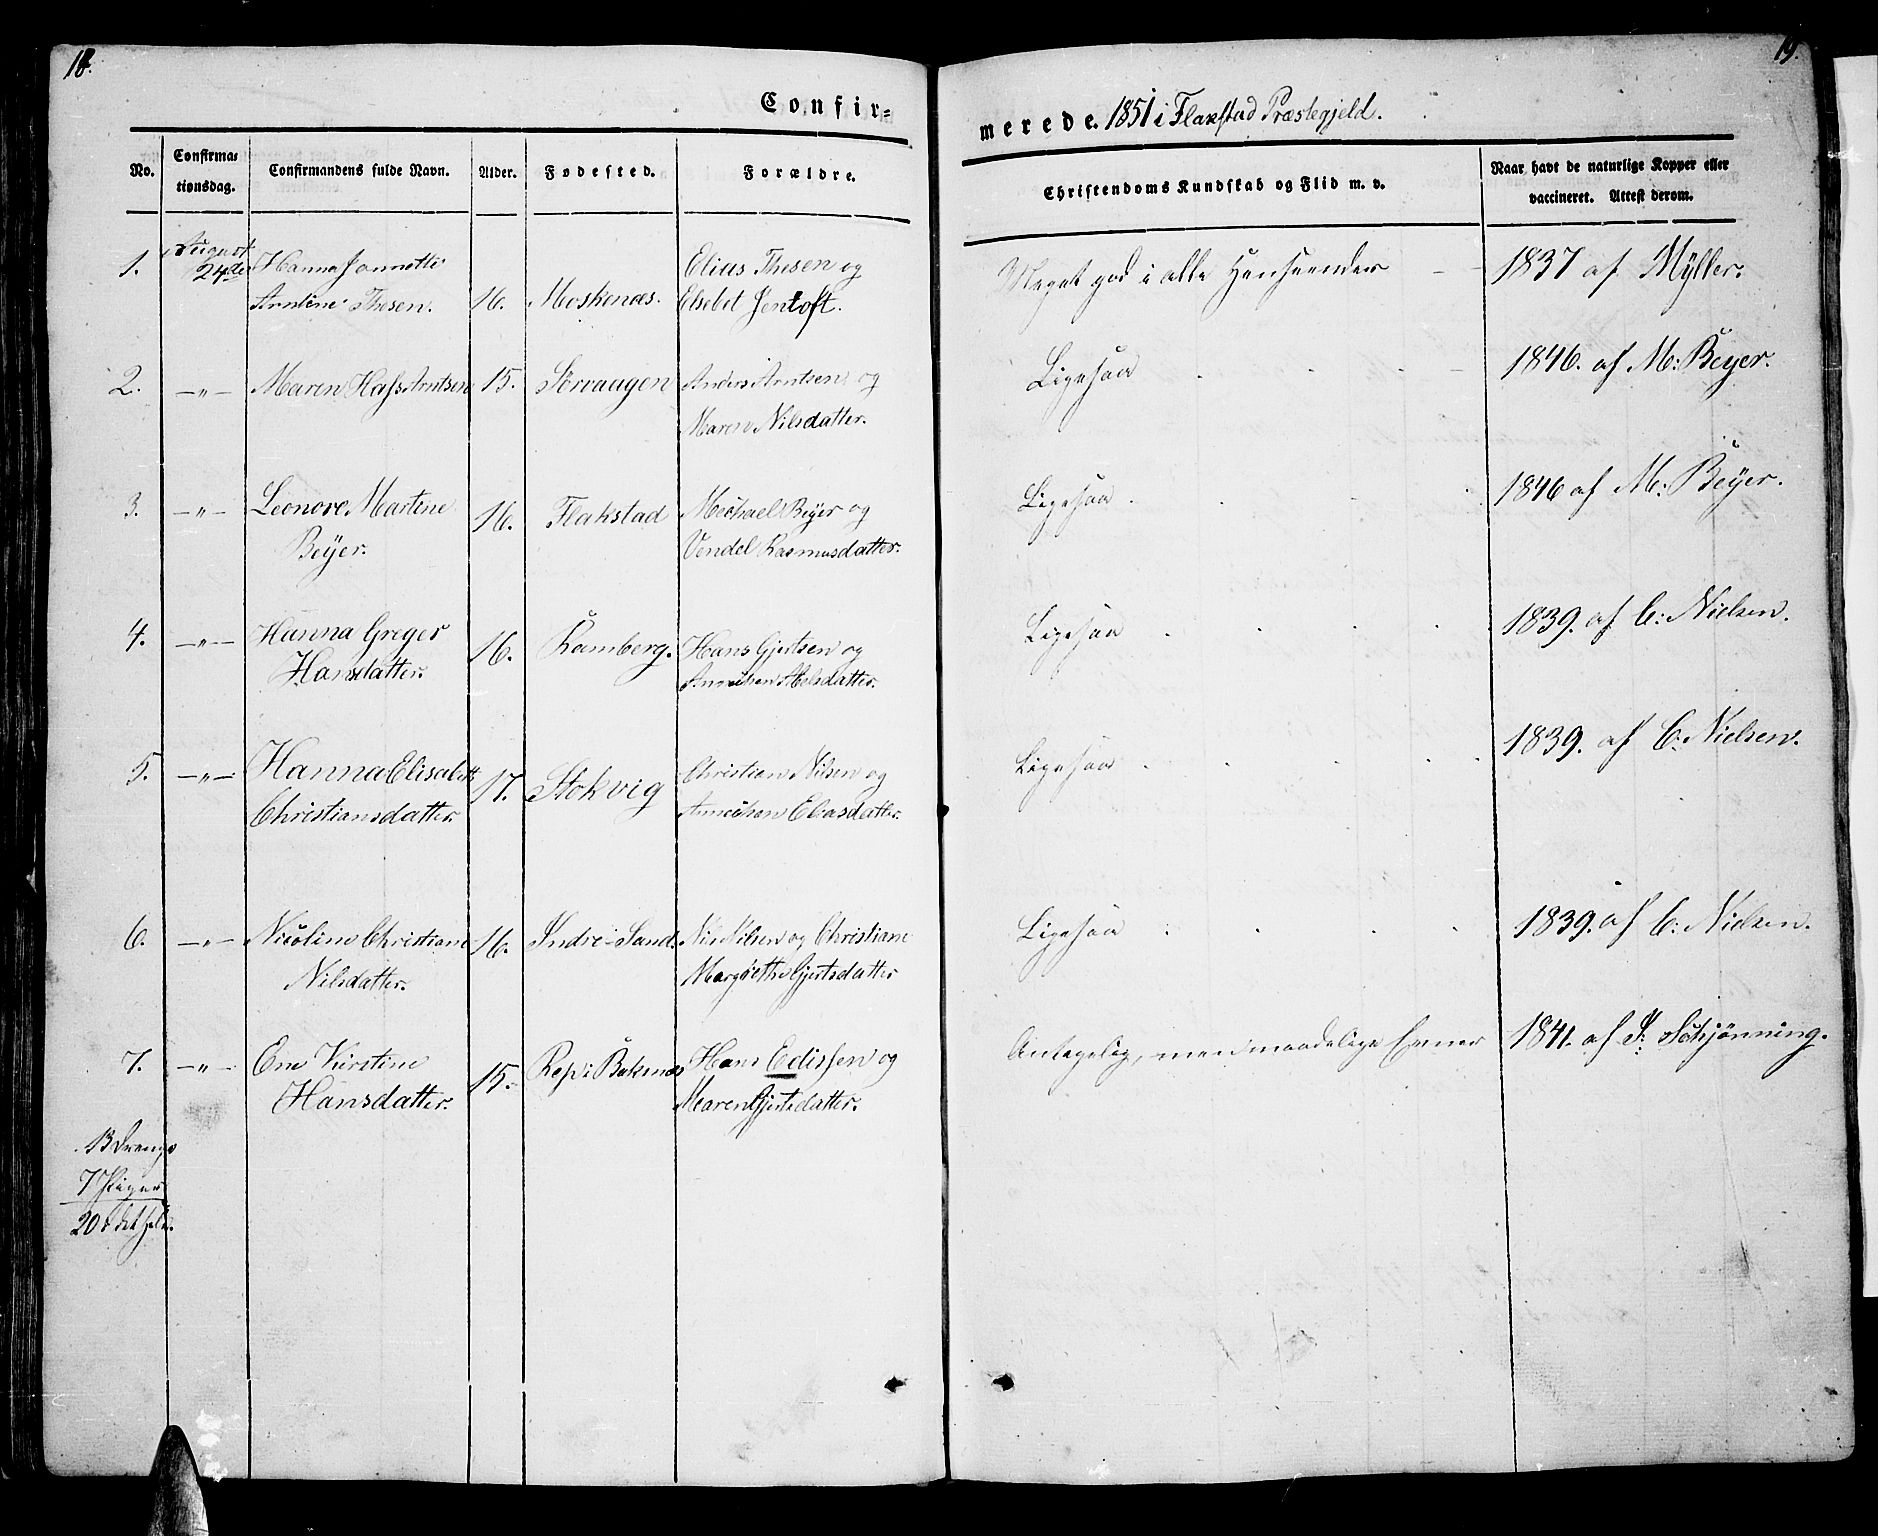 18.
19.
Confir-
merede. 1851 i Flakstad Præstegjeld.
No.
Confirma-
tionsdag.
Confirmandens fulde Navn.
Alder.
Fødested.
Forældre.
Christendoms Kundskab og Flid m. v.
Naar havt de naturlige Kopper eller
vaccineret. Attest derom.
1.
August
24de
Hanna Jannette
Arntine Thesen.
16.
Moskenæs.
Elias Thesen og
Elsebet Jentoft.
Meget god i alle Henseender - -
1837 af Mÿller.
2.
—"—
Maren Hass Arntsen
15.
Sørvaagen
Anders Arntsen og
Maren Nilsdatter.
Ligesaa
1846. af M: Beyer.
3.
—"—
Leonore Martine
Beÿer.
16.
Flakstad
Michael Beÿer og
Vendel Rasmusdatter.
Ligesaa
1846 af M: Beÿer.
4.
—"—
Hanna Greger
Hansdatter.
16.
Ramberg.
Hans Gjertsen og
Ligesaa
1839. af C: Nielsen.
5.
—"—
Hanna Elisabeth
Christiansdatter.
17.
Stokvig
Christian Nilsen og
Annichen Eliasdatter.
Ligesaa
1839. af C: Nielsen.
6.
—"—
Nicoline Christiane
Nilsdatter.
16.
Indre-Sand.
Nis Nilsen og Christiane
Margrethe Gjertsdatter
Ligesaa
1839. af C: Nielsen.
7.
—"—
Ene Kirstine
Hansdatter.
15.
Rep i Buksnæs
Hans Edissen og
Maren Gjertsdatter.
Antagelig, men maadelige Evner
1841. af J: Schjønning.
13 Drenge
7 Piger
20 i det hele.